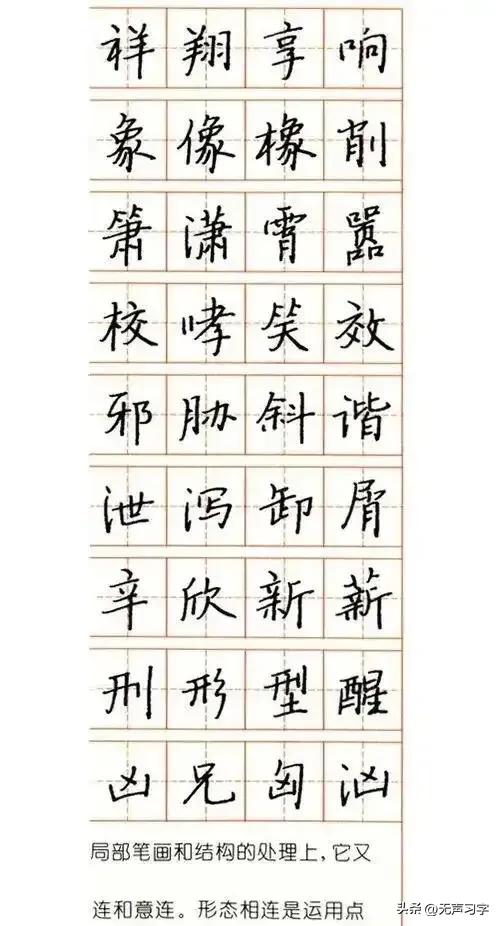 祥翔享响
象像橡削
箫潇霄嚣
校哮笑效
邪胁斜谐
泄泻卸屑
辛欣新薪
刑形型醒
凶兄匈汹
局部笔画和结构的处理上,它又
连和意连。形态相连是运用点
头条@无声习字